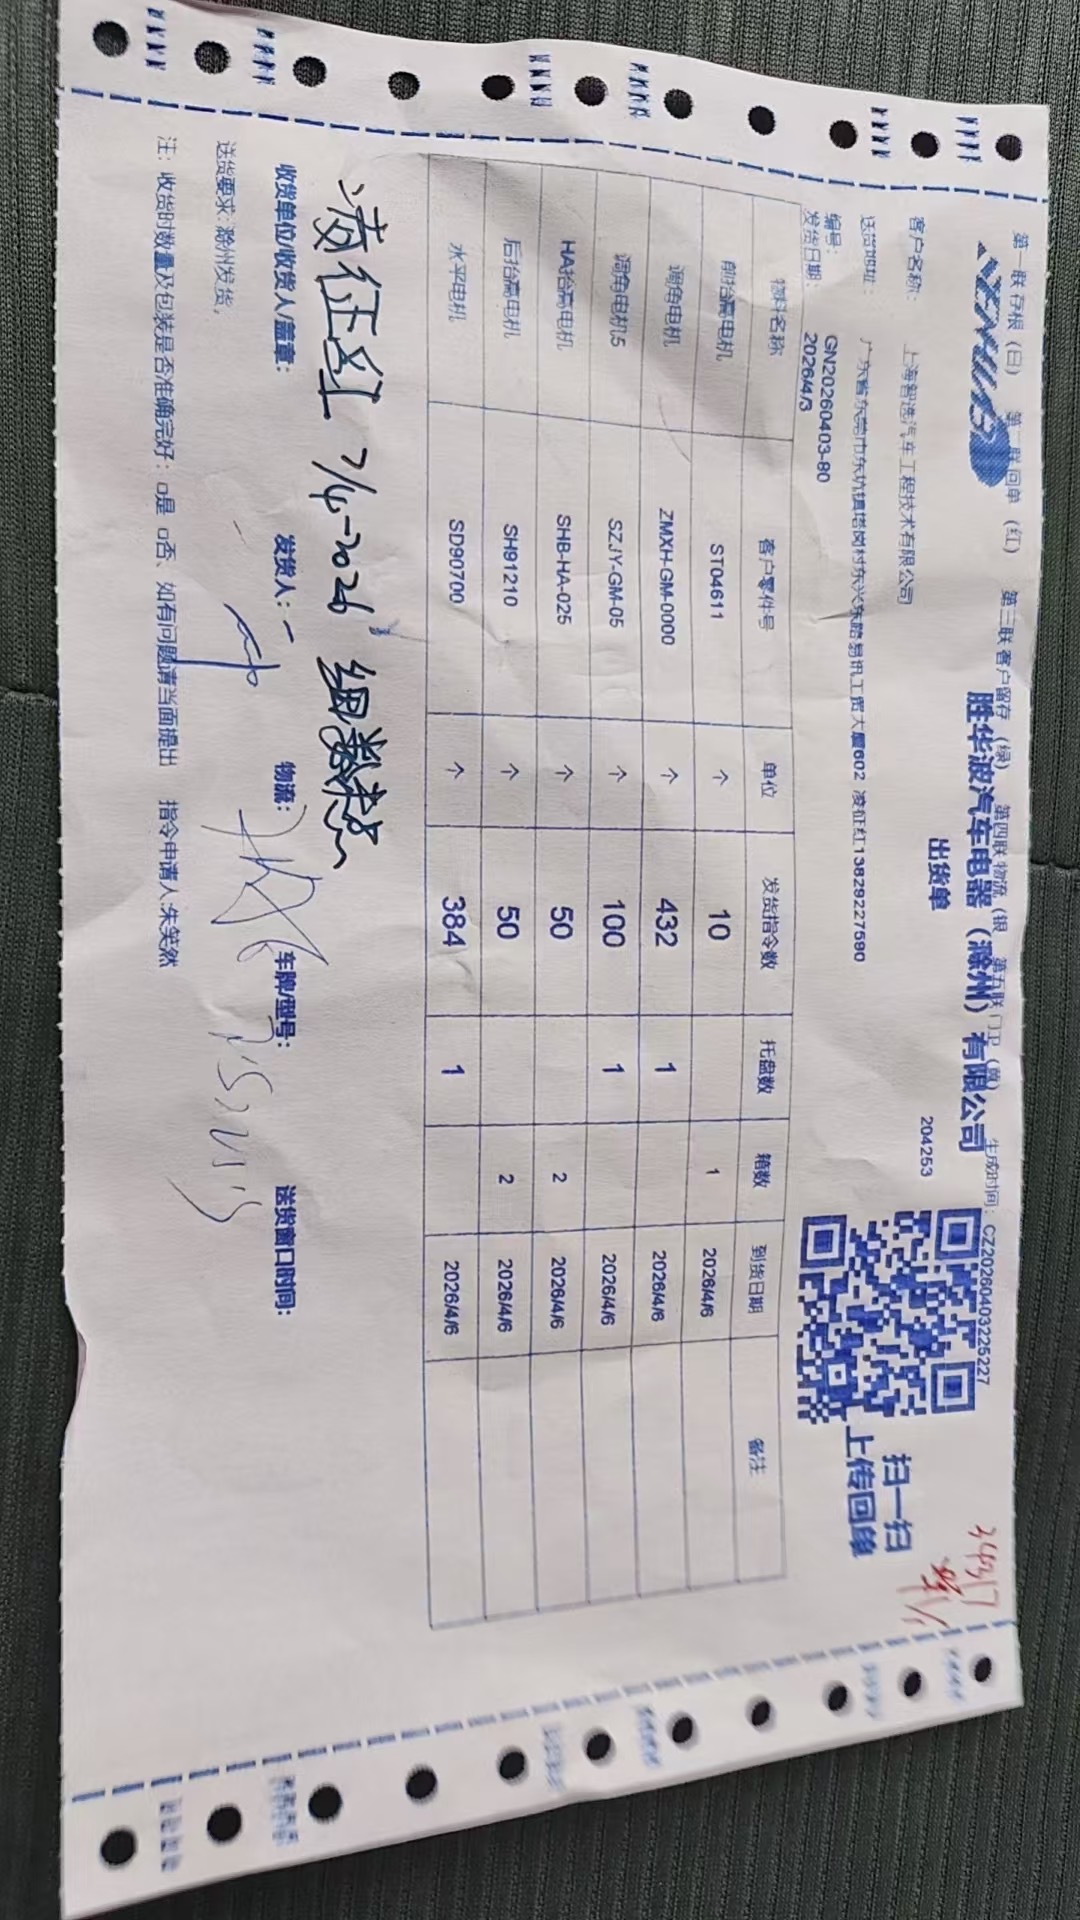 第一联 存根（白） 第二联 回单（红） 第三联 客户留存（绿） 第四联 物流（银 第五联 门卫（黄） 生成时间：CZ20260403225227
SHB
胜华波汽车电器（滁州）有限公司
出货单
204253
扫一扫
上传回单
客户名称： 上海智选汽车工程技术有限公司
送货地址： 广东省东莞市东坑镇塔岗村东兴东路易讯工贸大厦602 凌征红13829227590
编号： GN20260403-80
发货日期： 2026/4/3
物料名称 客户零件号 单位 发货指令数 托盘数 箱数 到货日期 备注
前抬高电机 ST04611 个 10 1 2026/4/6
调角电机 ZMXH-GM-0000 个 432 1 2026/4/6
调角电机5 SZJY-GM-05 个 100 1 2026/4/6
HA抬高电机 SHB-HA-025 个 50 2 2026/4/6
后抬高电机 SH91210 个 50 2 2026/4/6
水平电机 SD90700 个 384 1 2026/4/6
凌征红 7/4-2026 细数未点
收货单位/收货人/盖章： 发货人： 物流： 车牌/型号： 送货窗口时间：
送货要求：滁州发货，
注：收货时数量及包装是否准确完好：□是 □否、如有问题请当面提出 指令申请人:朱笑然